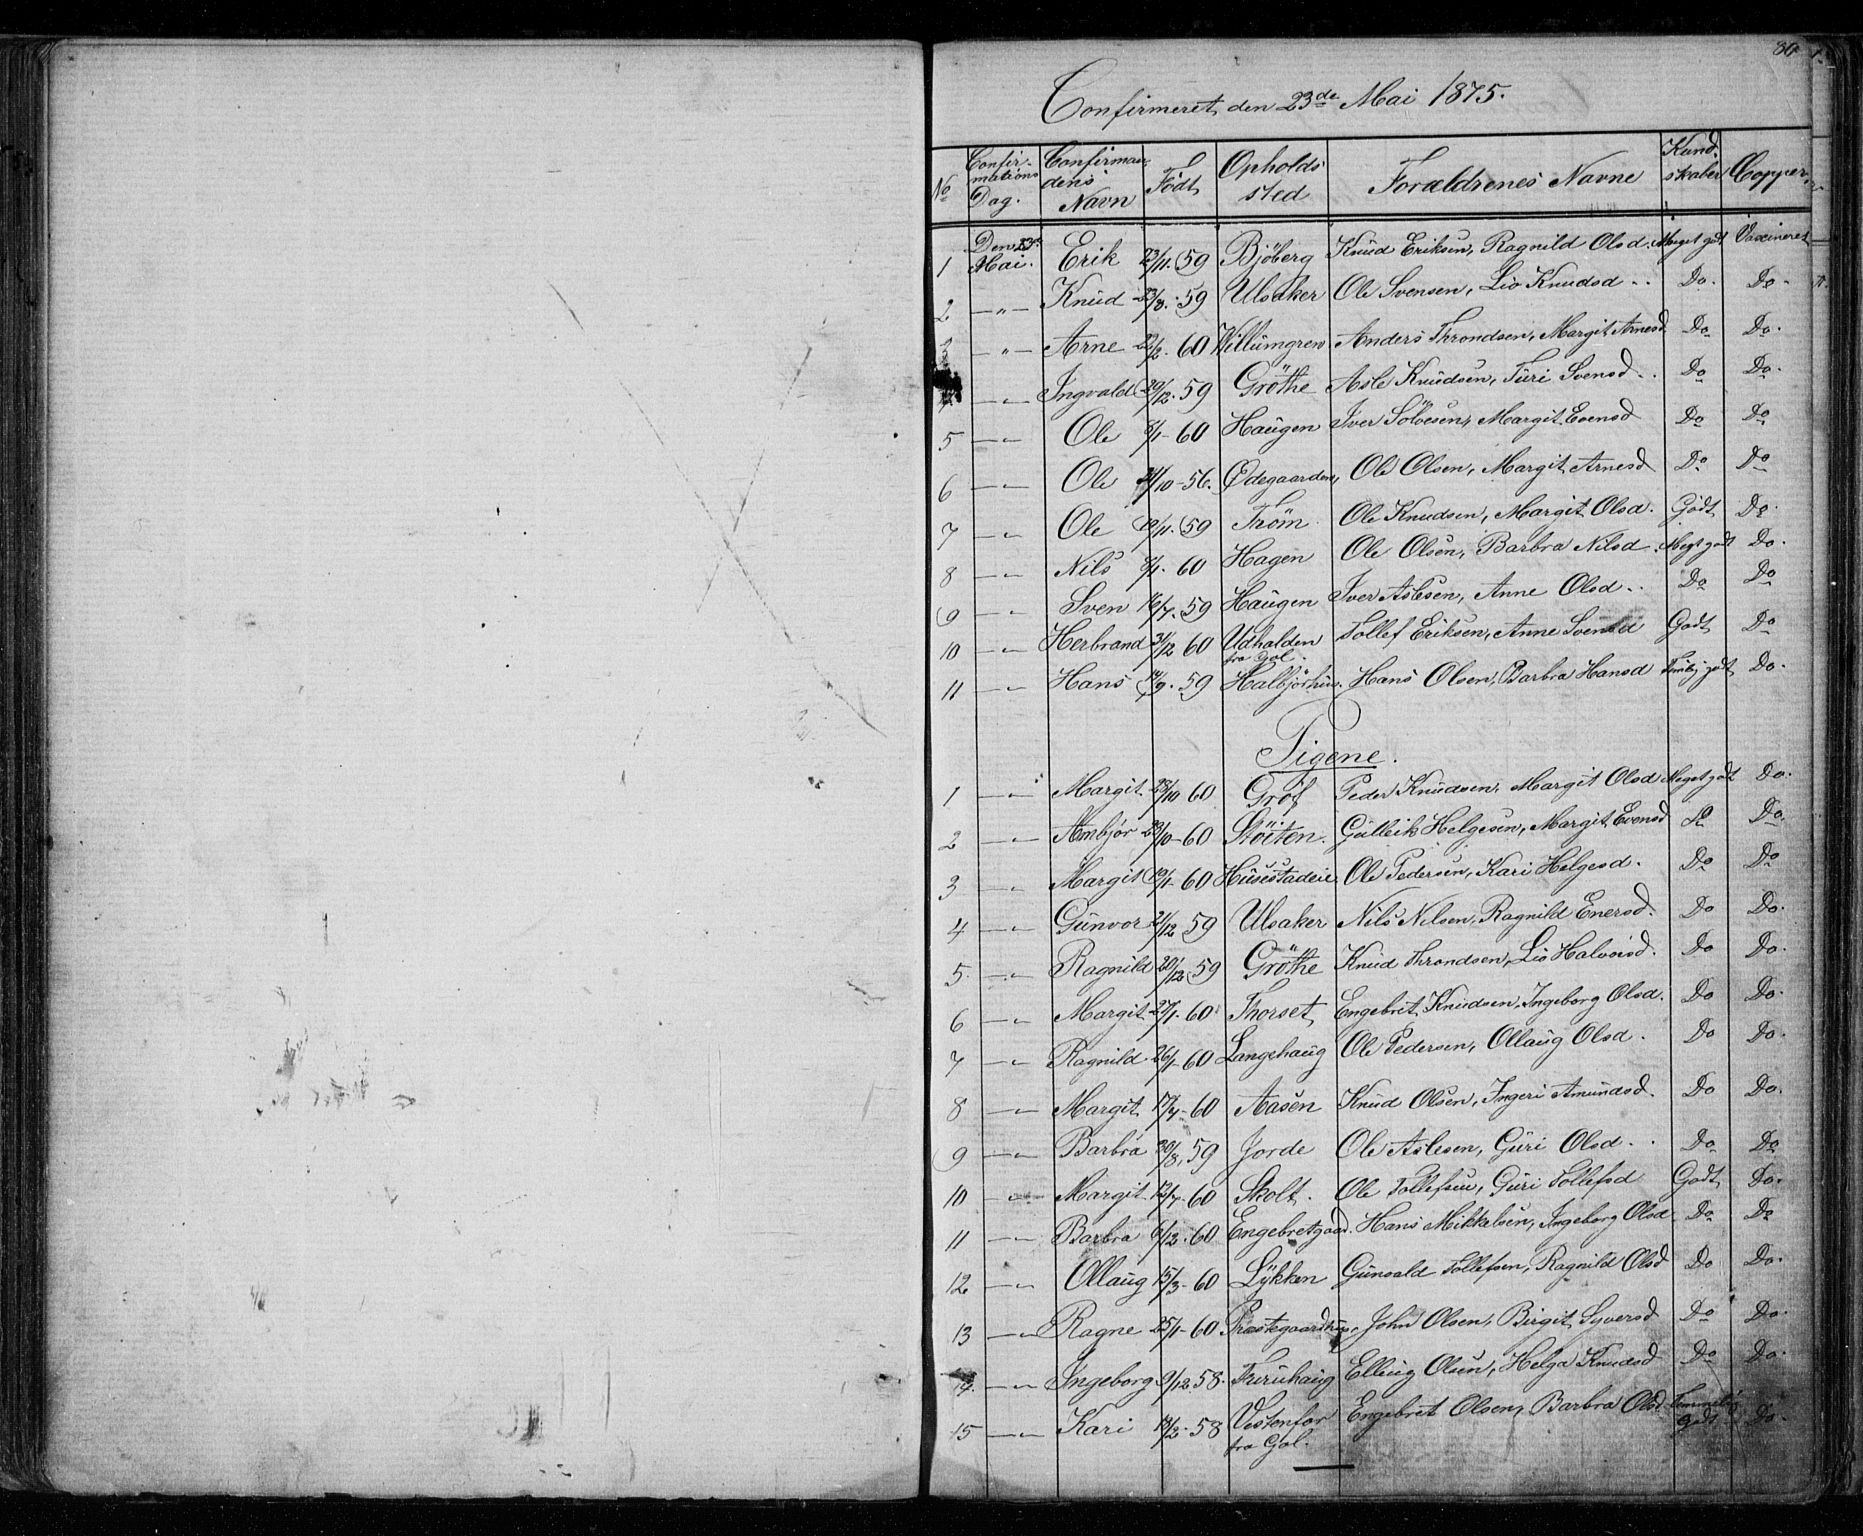 80
Confirmeret den 23de Mai 1875.
No | Confirmations Dag. | Confirmandens Navn | Født | Opholdssted | Forældrenes Navne | Kundskaber | Copper
1 Den 23de Mai. Erik 23/11. 59 Bjöberg Knud Eriksen, Ragnild Olsd. Meget godt Vaxineret
2 —"— Knud 23/8. 59 Ulsaker Ole Svensen, Liv Knudsd . . Do. Do.
3 —"— Arne 22/2. 60 Willumgren Anders Throndsen, Margit Arnesd Do Do.
—"— Ingvald 29/12. 59 Gröthe Asle Knudsen, Turi Svensd . . Do Do.
5 —"— Ole 8/1- 60 Haugen Iver Sölvesen, Margit Evensd Do Do
6 —"— Ole /10-56. Ødegaarden, Ole Olsen, Margit Arnesd Do Do
7 —"— Ole 19/11. 59 Tröm Ole Knudsen, Margit Olsd. Godt Do.
8 —"— Nils 8/1. 60 Hagen Ole Olsen, Barbra Nilsd. Meget godt Do.
9 —"— Sven 16/7. 59 Haugen Iver Aslesen, Anne Olsd . . Do Do
10 —"— Herbrand 31/12 60 Udhalden fra Gol. Tollef Eriksen, Anne Svensd Godt Do
11 —"— Hans 14/9. 59 Halbjörhus. Hans Olsen, Barbra Hansd godt Do.
Pigene.
1 —"— Margit 23/10 60 Gröf Peder Knudsen, Margit Olsd Meget godt Do.
2 —"— Ambjör 23/10-60 Stöiten. Gulleik Helgesen, Margit Evensd Do Do.
3 —"— Margit 19/1- 60 Husestadeie Ole Pedersen, Kari Helgesd. Do Do
4 —"— Gunvor 21/12 59 Ulsaker Nils Nilsen, Ragnild Enersd. Do Do.
5. —"— Ragnild 20/12. 59 Gröthe Knud Throndsen, Liv Halvorsd. Do Do.
6 —"— Margit 27/1. 60 Thorset Engebret Knudsen, Ingeborg Olsd. Do Do.
7 —"— Ragnild 26/1- 60 Langehaug Ole Pedersen, Ollaug Olsd. Do Do.
8 —"— Margit 17/7- 60 Aasen Knud Olsen, Ingeri Amundsd. Do Do.
9 —"— Barbra 30/8. 59 Jorde Ole Aslesen, Guri Olsd . . Do Do
10 —"— Margit 12/7- 60 Skolt. Ole Tollefsen, Guri Tollefsd Godt Do.
11 —"— Barbra 6/12. 60 Engebretgaard. Hans Mikkelsen, Ingeborg Olsd Do Do
12 —"— Ollaug 15/3- 60 Lykken Gunvald Tollefsen, Ragnild Olsd Do Do.
13 —"— Ragne 25/1- 60 Præstegaardhus, John Olsen, Birgit Syversd Do Do.
—"— Ingeborg 9/12 58. Furuhaug Elling Olsen, Helga Knudsd Do Do.
15 —"— Kari 18/2. 58 Vestenfor fra Gol. Engebret Olsen, Barbra Olsd Temmelig godt Do.